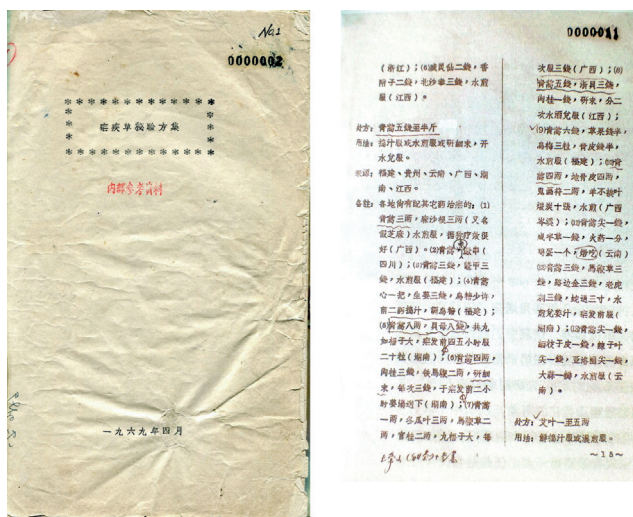 No.1
0000002
疟疾单秘验方集
内部参考资料
一九六九年四月
0000011
(浙江)；(6)威灵仙二錢，香
附子二錢，北沙参三錢，水煎
服(江西)。
处方：青蒿五錢至半斤
用法：搗汁服或水煎服或研細末，开
水兌服。
来源：福建、貴州、云南、广西、湖
南、江西。
备註：各地尚有配其它药治疟的：(1)
青蒿三两，痳沙根三两(又名
假芝麻)水煎服，据称疗效很
好(广西)。(2)青蒿
四川)；(3)青蒿三錢，鱉甲三
錢，水煎服(福建)；(4)青蒿
心一把，生姜三錢，烏梅少許，
前二药搗汁，
(5)青蒿八两，貝母八錢，共丸
如梧子大，疟发前四五小时服
二十粒(湖南)；(6)青蒿四两，
肉桂三錢，鉄馬鞭二两，研細
末，每次三錢，于疟发前二小
时姜湯送下(湖南)；(7)青蒿
一两，冬瓜叶三两，馬鞭草二
两，官桂二两，丸梧子大，每
次服三錢(广西)；(8)
青蒿五錢，浙貝三錢，
肉桂一錢，研末，分二
次水酒兌服(江西)；
(9)青蒿六錢，草果錢半，
烏梅三粒，青皮錢半，
水煎服(福建)；(10)青
蒿四两，地骨皮四两，
煅炭十珠，水煎(广西
(11)青蒿尖一錢，
咸半草一錢，火药一分，
鸡蛋一个，烙吃(云南)
(12)青蒿三錢，馬鞭草三
錢，路边金三錢，老虎
刺三錢，蛇退三寸，水
煎兌姜汁，疟发前服(
湖南)；(13)青蒿尖一錢，
大蒜一瓣，水煎服(云
南)。
处方：艾叶一至五两
用法：鮮搗汁服或濃煎服。
~15~